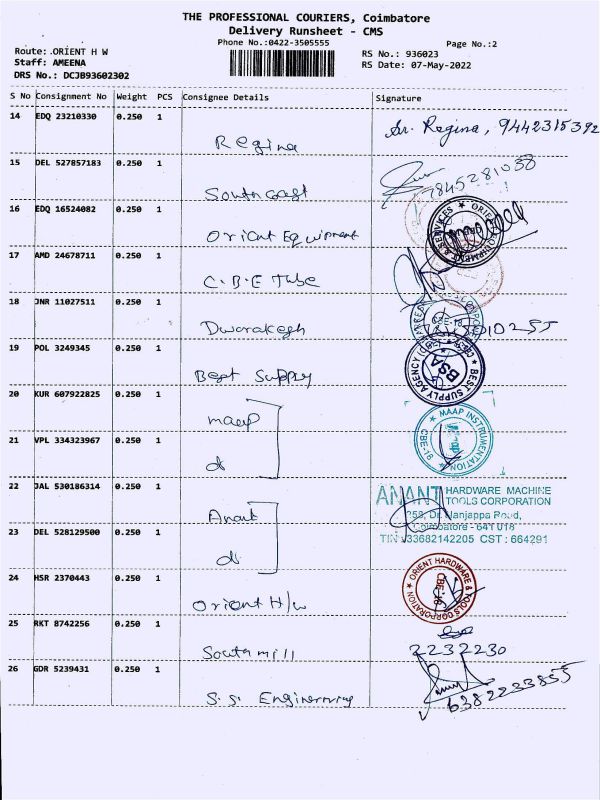 THE PROFESSIONAL COURIERS, Coimbatore
Delivery Runsheet - CMS
Phone No.:0422-3505555
Page No.:2
Route: ORIENT H W
Staff: AMEENA
DRS No.: DCJB93602302
RS No.: 936023
RS Date: 07-May-2022
S No Consignment No Weight PCS Consignee Details Signature
14 EDQ 23210330 0.250 1 Regina Sr. Regina, 9442315392
15 DEL 527857183 0.250 1 Southcoast 7845281038
16 EDQ 16524082 0.250 1 Orient Equipment
17 AMD 24678711 0.250 1 C.B.E Tube
18 JNR 11027511 0.250 1 Dwarakesh
19 POL 3249345 0.250 1 Best Supply ★ BEST SUPPLY AGENCY BSA
20 KUR 607922825 0.250 1 maap ★ MAAP INSTRUMENTATION CBE-18
21 VPL 334323967 0.250 1 do
22 JAL 530186314 0.250 1 Anant ANANT HARDWARE MACHINE
TOOLS CORPORATION
258, Dr. Nanjappa Road,
Coimbatore - 641 018
23 DEL 528129500 0.250 1 do TIN 33682142205 CST : 664291
24 HSR 2370443 0.250 1 Orient H/w ★ ORIENT HARDWARE & TOOLS CORPORATION
25 RKT 8742256 0.250 1 South mill 2232230
26 GDR 5239431 0.250 1 S.S. Engineering 6382233855